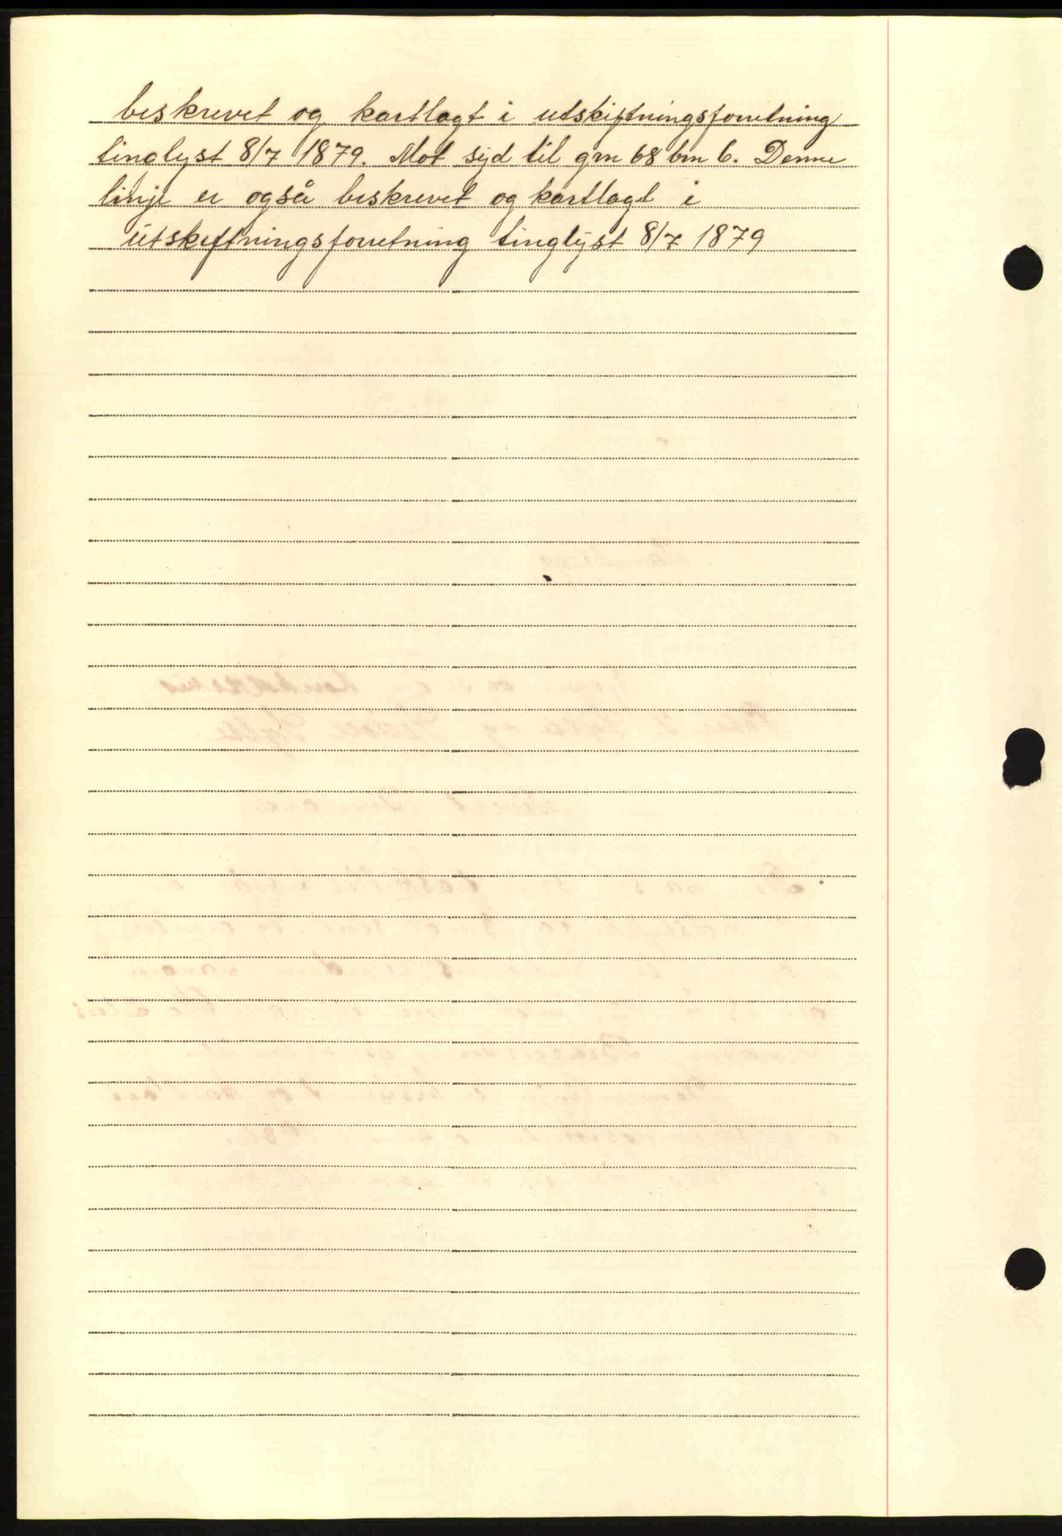 beskrevet og kartlagt i utskiftningsforretning
tinglyst 8/7 1879. Mot syd til grn 68 brn 6. Denne
linje er også beskrevet og kartlagt i
utskiftningsforretning tinglyst 8/7 1879